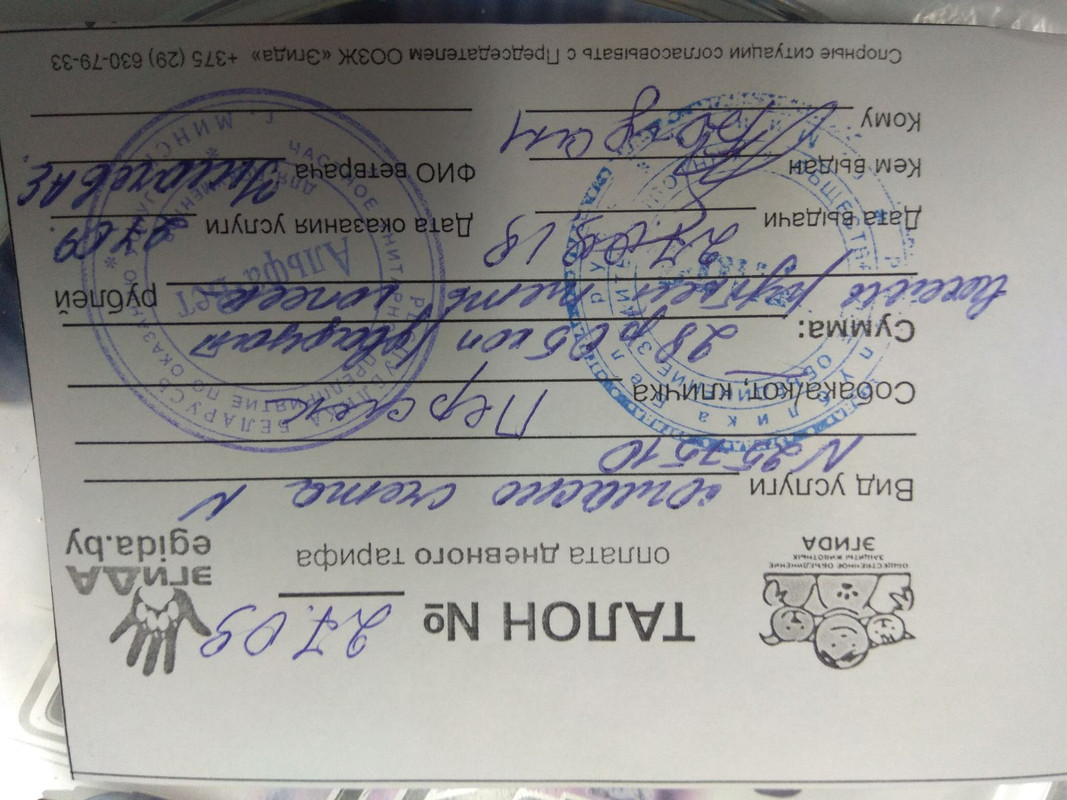 ОБЩЕСТВЕННОЕ ОБЪЕДИНЕНИЕ
ЗАЩИТЫ ЖИВОТНЫХ
ЭГИДА
ТАЛОН № 27.09
оплата дневного тарифа
ЭГИДА
egida.by
Вид услуги согласно счета N
N 257510
Собака/кот, кличка Персик
Сумма: 28 р 05 коп (двадцать
восемь рублей пять копеек рублей
Дата выдачи 27.09.18 Дата оказания услуги 27.09
Кем выдан ФИО ветврача
Кому
Спорные ситуации согласовывать с Председателем ООЗЖ «Эгида» +375 (29) 630-79-33
РЕСПУБЛИКА БЕЛАРУСЬ
г. МИНСК